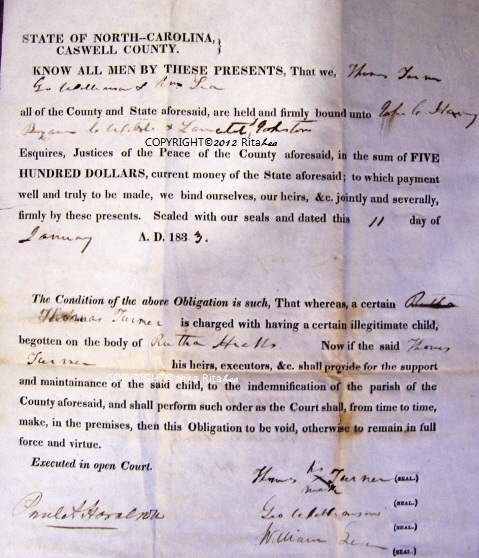 STATE OF NORTH-CAROLINA,
CASWELL COUNTY. }
KNOW ALL MEN BY THESE PRESENTS, That we, Thomas Turner
Geo Williamson & Wm Lea
all of the County and State aforesaid, are held and firmly bound unto
& Johnston
COPYRIGHT©2012 RitaLea
Esquires, Justices of the Peace of the County aforesaid, in the sum of FIVE
HUNDRED DOLLARS, current money of the State aforesaid; to which payment
well and truly to be made, we bind ourselves, our heirs, &c. jointly and severally,
firmly by these presents. Sealed with our seals and dated this 11 day of
January A. D. 1833.
The Condition of the above Obligation is such, That whereas, a certain
Thomas Turner is charged with having a certain illegitimate child,
begotten on the body of Rutha Now if the said Thomas
Turner his heirs, executors, &c. shall provide for the support
COPYRIGHT©2012 RitaLea
and maintainance of the said child, to the indemnification of the parish of the
County aforesaid, and shall perform such order as the Court shall, from time to time,
make, in the premises, then this Obligation to be void, otherwise to remain in full
force and virtue.
Executed in open Court.
his
Thomas X Turner (SEAL.)
mark
(SEAL.)
Paul A Haralson
Geo Williamson
(SEAL.)
William Lea
(SEAL.)